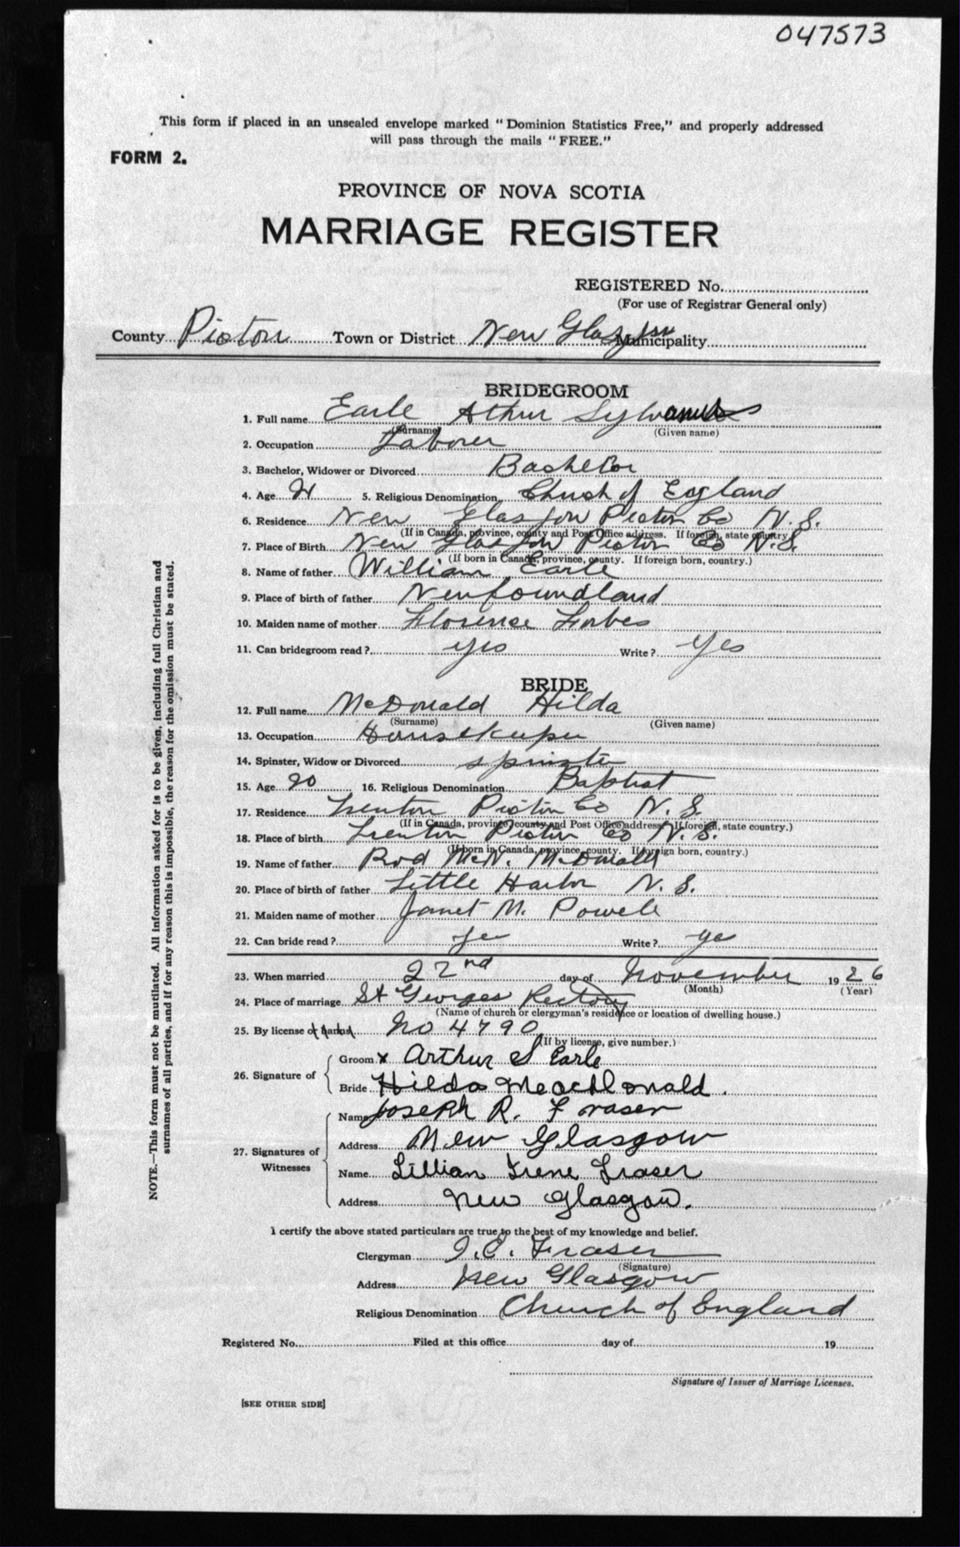 047573
This form if placed in an unsealed envelope marked "Dominion Statistics Free," and properly addressed
will pass through the mails "FREE."
FORM 2.
PROVINCE OF NOVA SCOTIA
MARRIAGE REGISTER
REGISTERED No.
(For use of Registrar General only)
County Pictou Town or District New Glasgow Municipality
BRIDEGROOM
1. Full name Earle Athur Sylvanus
(Surname) (Given name)
2. Occupation Laborer
3. Bachelor, Widower or Divorced Bachelor
4. Age 21 5. Religious Denomination Church of England
6. Residence New Glasgow Pictou Co N.S.
(If in Canada, province, county and Post Office address. If foreign, state country.)
7. Place of Birth New Glasgow Pictou Co N.S.
(If born in Canada, province, county. If foreign born, country.)
8. Name of father William Earle
9. Place of birth of father Newfoundland
10. Maiden name of mother Florence Forbes
11. Can bridegroom read? yes Write? Yes
BRIDE
12. Full name McDonald Hilda
(Surname) (Given name)
13. Occupation Housekeeper
14. Spinster, Widow or Divorced spinster
15. Age 20 16. Religious Denomination Baptist
17. Residence Trenton Pictou Co N.S.
(If in Canada, province, county and Post Office address. If foreign, state country.)
18. Place of birth Trenton Pictou Co N.S.
(If born in Canada, province, county. If foreign born, country.)
19. Name of father Rod McN. McDonald
20. Place of birth of father Little Harbor N.S.
21. Maiden name of mother Janet M. Powell
22. Can bride read? yes Write? yes
23. When married 22nd day of November 1926
(Month) (Year)
24. Place of marriage St Georges Rectory
(Name of church or clergyman's residence or location of dwelling house.)
25. By license or banns No 4790
(If by license, give number.)
26. Signature of
Groom x Arthur S Earle
Bride Hilda MacDonald.
27. Signatures of Witnesses
Name Joseph R. Fraser
Address New Glasgow
Name Lillian Irene Fraser
Address New Glasgow.
I certify the above stated particulars are true to the best of my knowledge and belief.
Clergyman Fraser
(Signature)
Address New Glasgow
Religious Denomination Church of England
Registered No. Filed at this office day of 19
Signature of Issuer of Marriage Licenses.
[SEE OTHER SIDE]
NOTE.—This form must not be mutilated. All information asked for is to be given, including full Christian and
surnames of all parties, and if for any reason this is impossible, the reason for the omission must be stated.